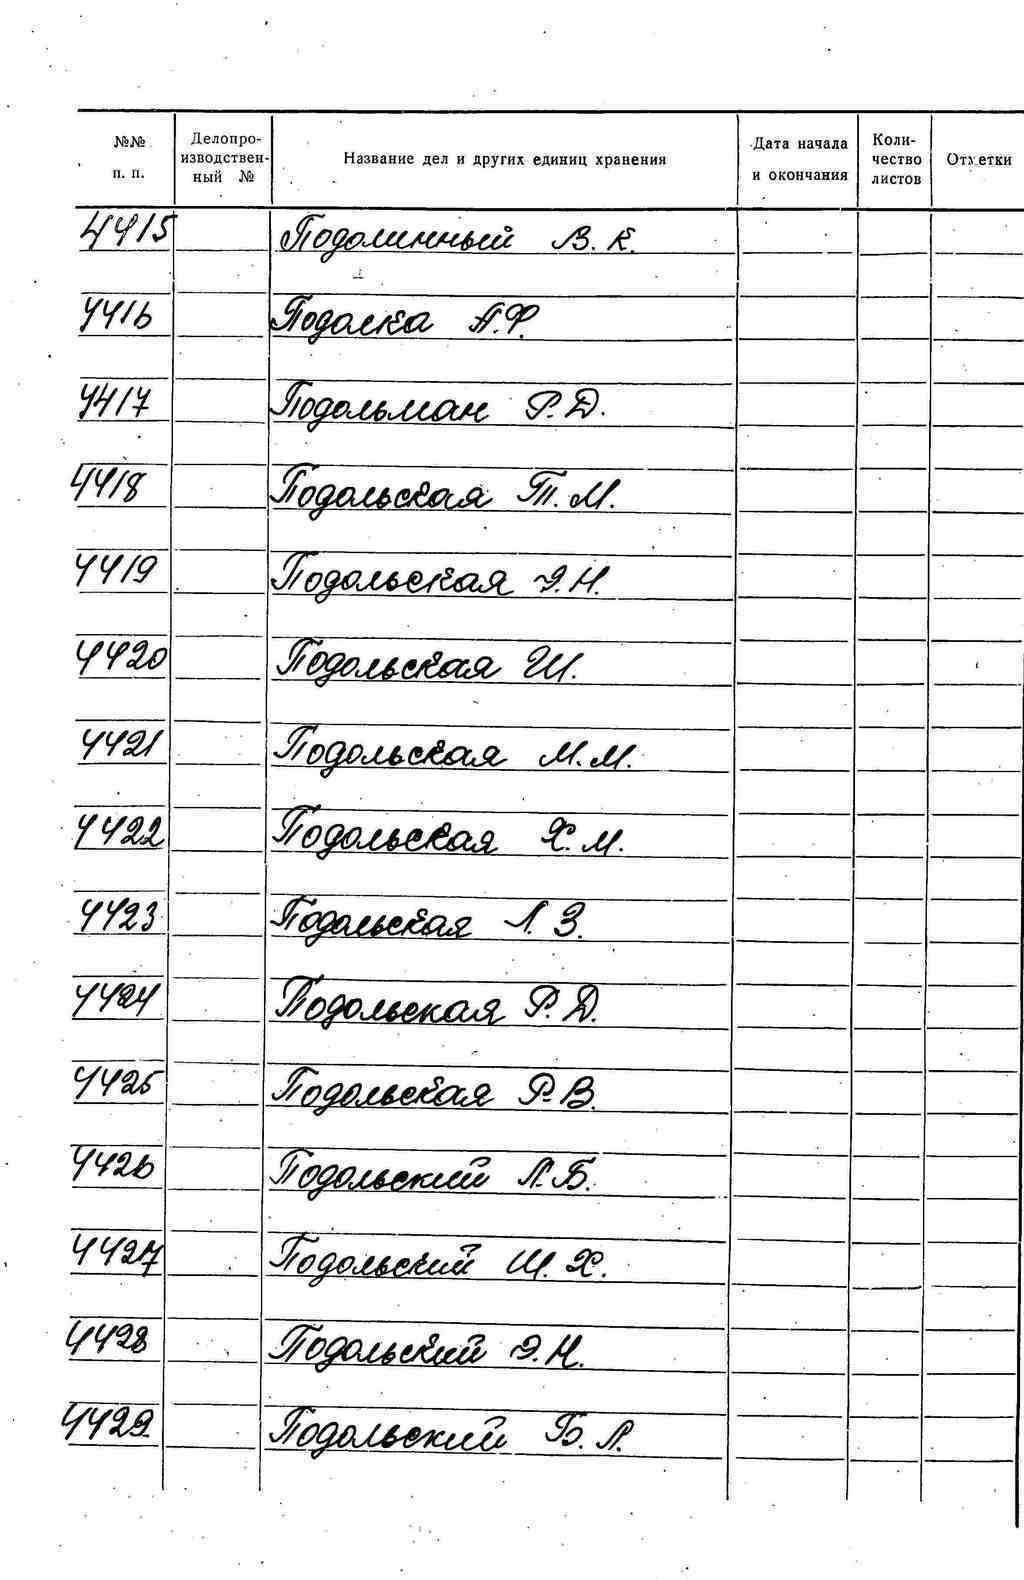 №№ п. п. Делопроизводственный № Название дел и других единиц хранения Дата начала и окончания Количество листов Отметки
4415 Подолинный В. К.
4416 Подолка А. Ф.
4417 Подольман Р. Д.
4418 Подольская Т. М.
4419 Подольская Э. Н.
4420 Подольская Ш.
4421 Подольская М. М.
4422 Подольская Х. М.
4423 Подольская Л. З.
4424 Подольская Р. Д.
4425 Подольская Р. В.
4426 Подольский Л. Б.
4427 Подольский Ш. Х.
4428 Подольский Э. Н.
4429 Подольский Б. Л.